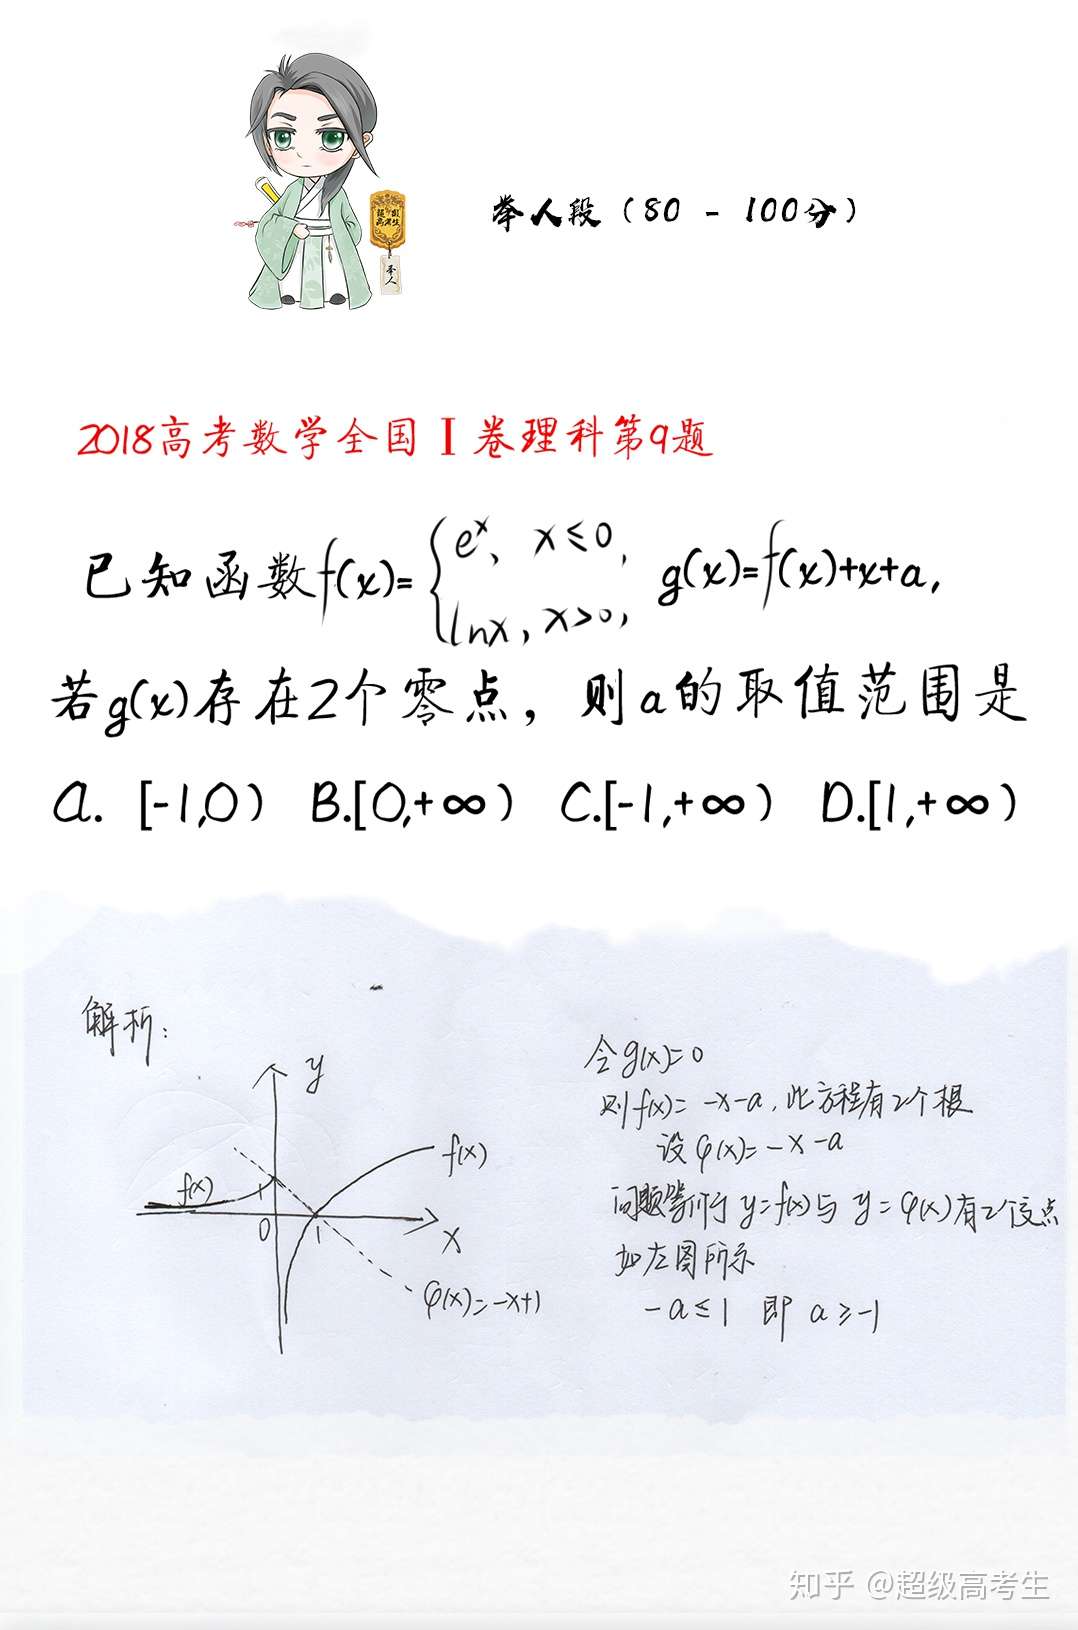 举人段（80 - 100分）
超级
高考生
举人
2018高考数学全国Ⅰ卷理科第9题
已知函数f(x)={e^x, x≤0, g(x)=f(x)+x+a,
lnx, x>0,
若g(x)存在2个零点，则a的取值范围是
A. [-1,0) B.[0,+∞) C.[-1,+∞) D.[1,+∞)
解析：
y
f(x)
f(x)
1
0
1
x
φ(x)=-x+1
令g(x)=0
则f(x)=-x-a,此方程有2个根
设φ(x)=-x-a
问题等价于y=f(x)与y=φ(x)有2个交点
如左图所示
-a≤1 即 a≥-1
知乎 @超级高考生